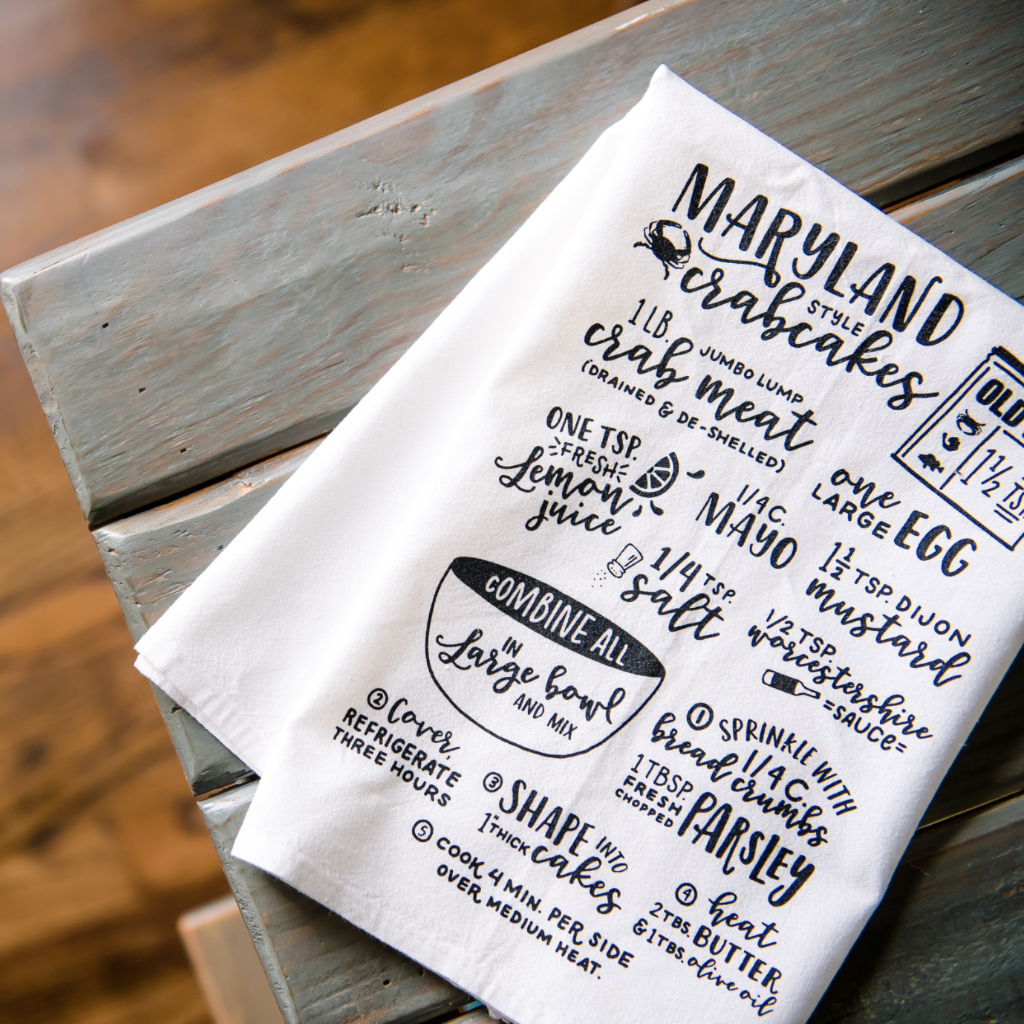 MARYLAND
STYLE
crabcakes
1 LB. JUMBO LUMP
crab meat
(DRAINED & DE-SHELLED)
OLD
1 1/2 TS
ONE TSP.
FRESH
Lemon
juice
1/4 C.
MAYO
one
LARGE EGG
1/4 TSP.
salt
1 1/2 TSP. DIJON
mustard
1/2 TSP.
worcestershire
=SAUCE=
COMBINE ALL
IN
Large bowl
AND MIX
1 SPRINKLE WITH
1/4 C.
bread crumbs
1 TBSP.
FRESH
CHOPPED
PARSLEY
2 Cover,
REFRIGERATE
THREE HOURS
3 SHAPE INTO
1" THICK cakes
4 heat
2 TBS. BUTTER
& 1 TBS. olive oil
5 COOK 4 MIN. PER SIDE
OVER MEDIUM HEAT.